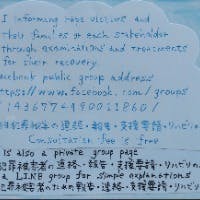 I informing rape victims and
their families of each stakeholder
through examinations and treatments
for their recovery.
facebook public group address
https://www.facebook.com/groups
1436577490011860/
犯罪被害者の連絡・報告・支援要請・リハビリの
Consultation fee is free
is also a private group page
犯罪被害者の連絡・報告・支援要請・リハビリの
a LINE group for simple explanations
犯罪被害者のための報告・連絡・支援要請・